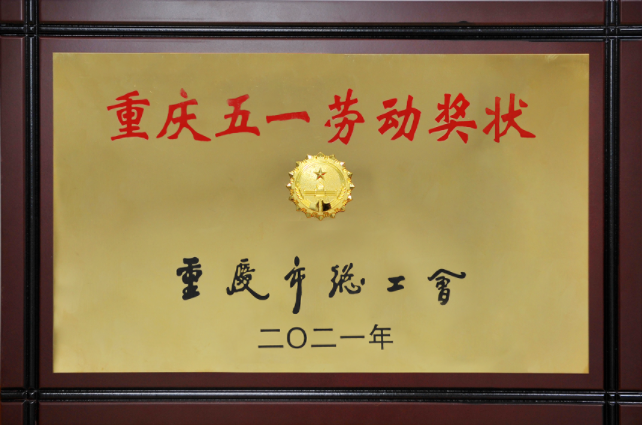 重庆五一劳动奖状
重慶市總工會
二〇二一年